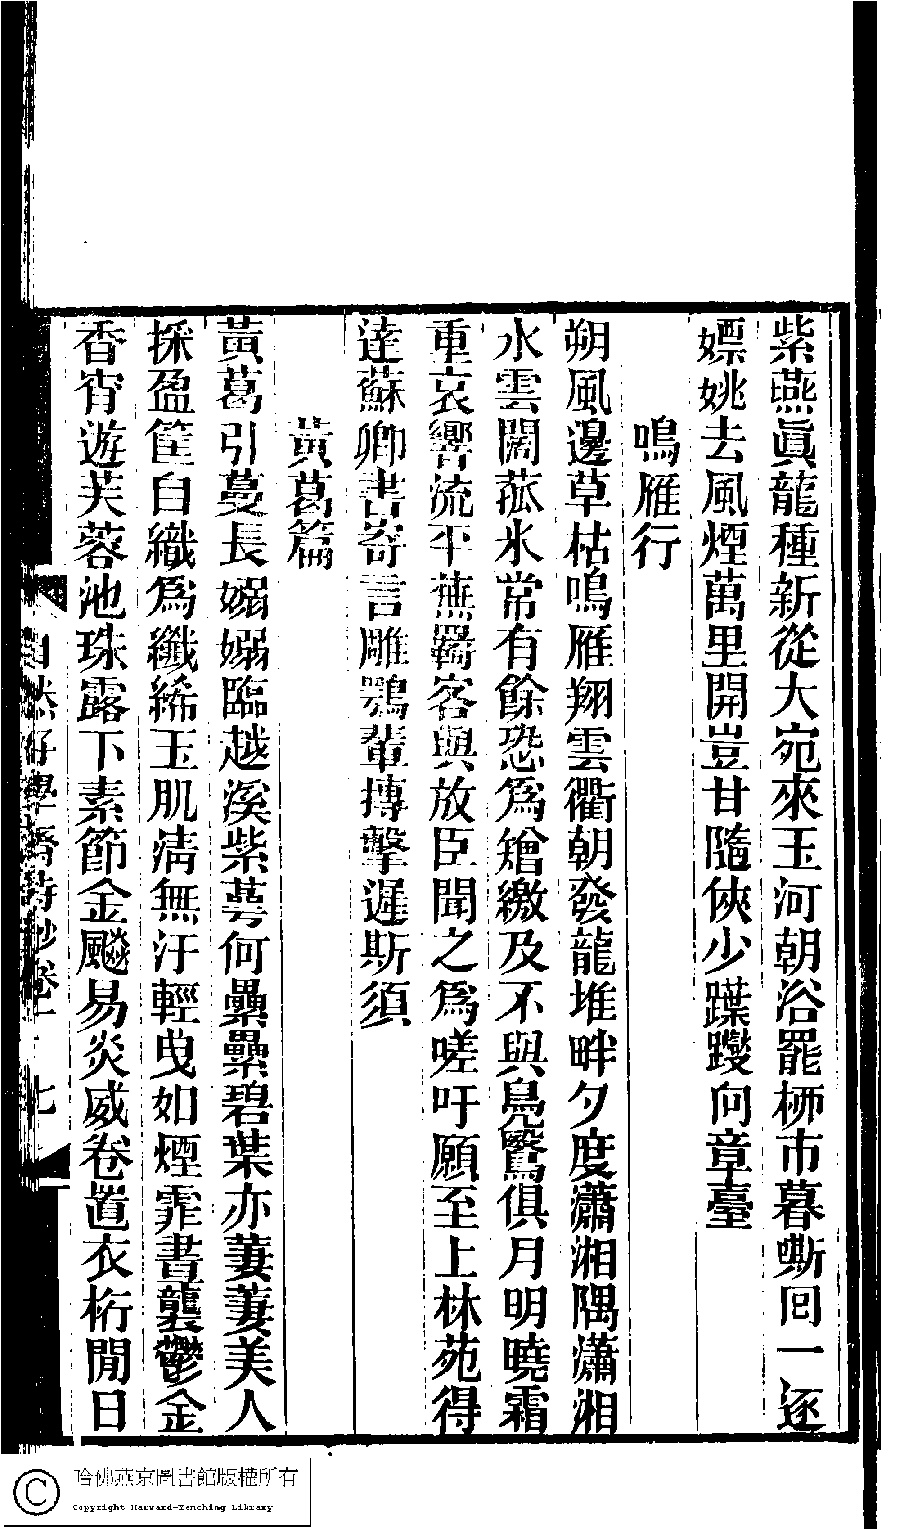 紫燕眞龍種新從大宛來玉河朝浴罷桺市暮嘶回一逐
嫖姚去風煙萬里開豈甘隨俠少蹀躞向章臺
鳴雁行
朔風邊草枯鳴雁翔雲衢朝發龍堆畔夕度瀟湘隅瀟湘
水雲闊菰米常有餘恐爲矰繳及不與鳧鷖俱月明曉霜
重哀響流平蕪羈客與放臣聞之爲嗟吁願至上林苑得
達蘇卿書寄言雕鶚輩摶擊遲斯須
黃葛篇
黃葛引蔓長嫋嫋臨越溪紫萼何纍纍碧葉亦萋萋美人
採盈筐白織爲纖絺玉肌清無汗輕曳如煙霏晝襲鬱金
香宵遊芙蓉池珠露下素節金飈易炎威卷置衣桁閒日
自然好學齋詩鈔卷一 七
哈佛燕京圖書館版權所有
Copyright Harvard-Yenching Library